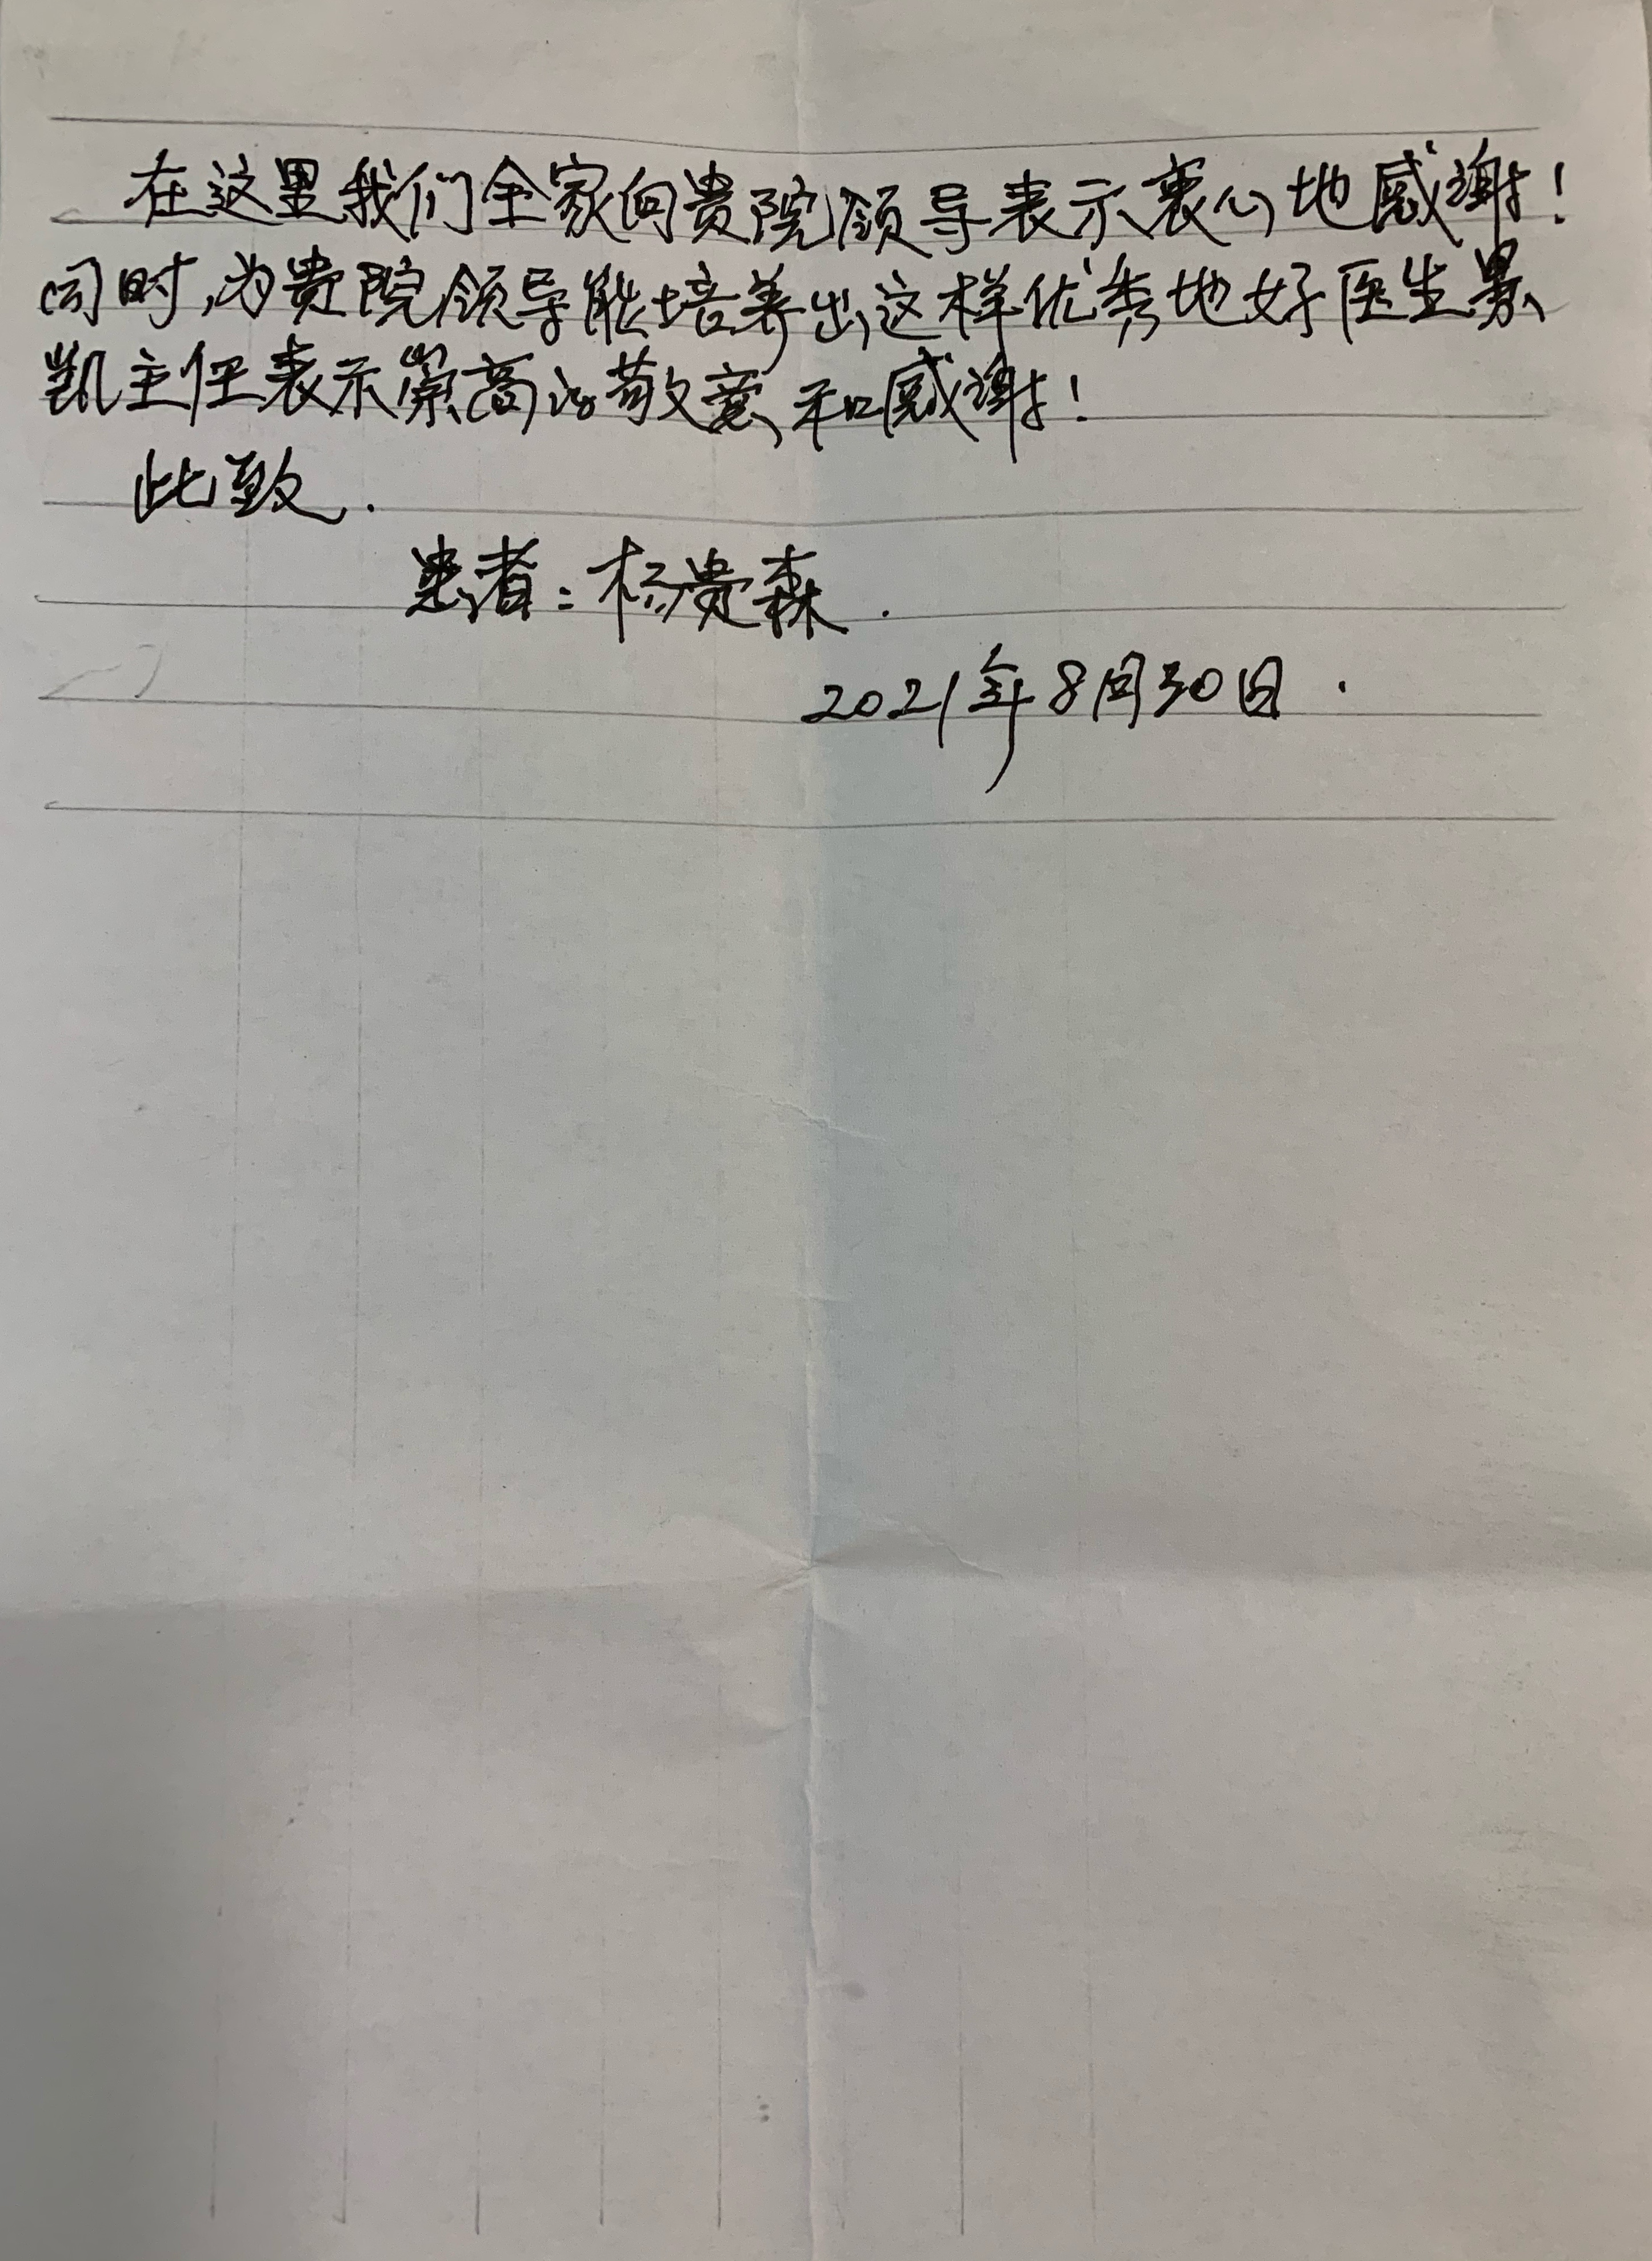 在这里我们全家向贵院领导表示衷心地感谢！
同时，为贵院领导能培养出这样优秀地好医生景
凯主任表示崇高的敬意和感谢！
此致.
患者：杨贵森.
2021年8月30日.